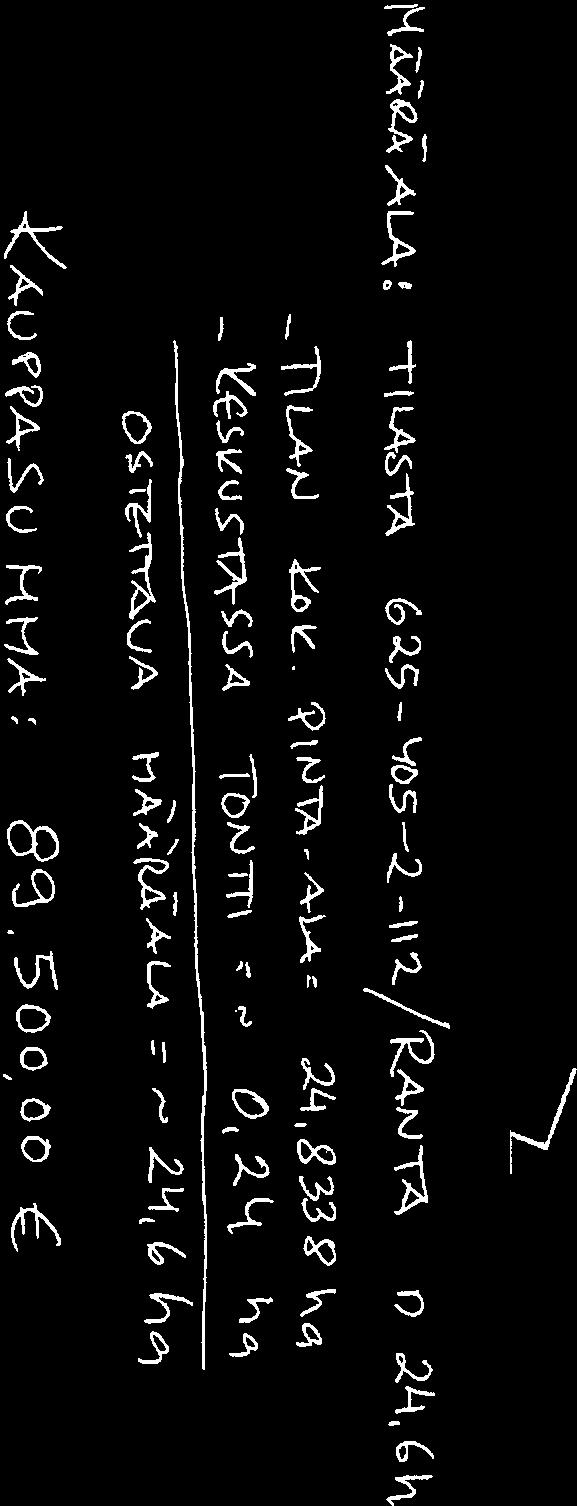 MÄÄRÄALA: TILASTA 625-405-2-112/RANTA n 24,6h
- TILAN KOK. PINTA-ALA= 24,8338 ha
- KESKUSTASSA TONTTI = ~ 0,24 ha
OSTETTAVA MÄÄRÄALA = ~ 24,6 ha
KAUPPASUMMA: 89.500,00 €